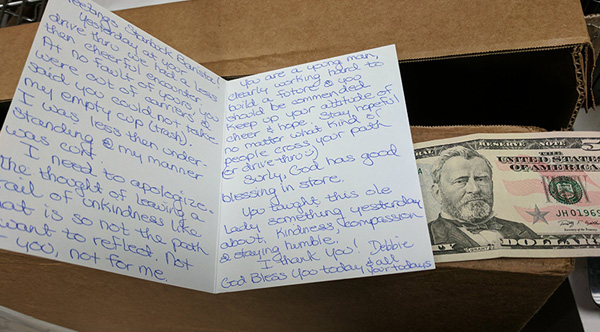 Greetings Starbuck Barista,
Yesterday at your
drive thru we had a less
then cheerful encounter.
At no fault of yours, you
were out of carriers &
said you could not take
my empty cup (trash).
I was less than under-
standing & my manner
was curt.
I need to apologize.
the thought of leaving a
trail of unkindness like
that is so not the path
want to reflect. Not
you, not for me.
You are a young man,
clearly working hard to
build a future & you
should be commended.
Keep up your attitude of
cheer & hope. Stay hopeful
no matter what kind of
people cross your path
(er drive thru :)
Surly, God has good
blessing in store.
You taught this ole
Lady something yesterday
about, kindness, compassion
& staying humble.
I thank You! Debbie
God Bless You today & all
your todays
RESERVE NOTE
UNITED STATES
JH01969
DOLLARS